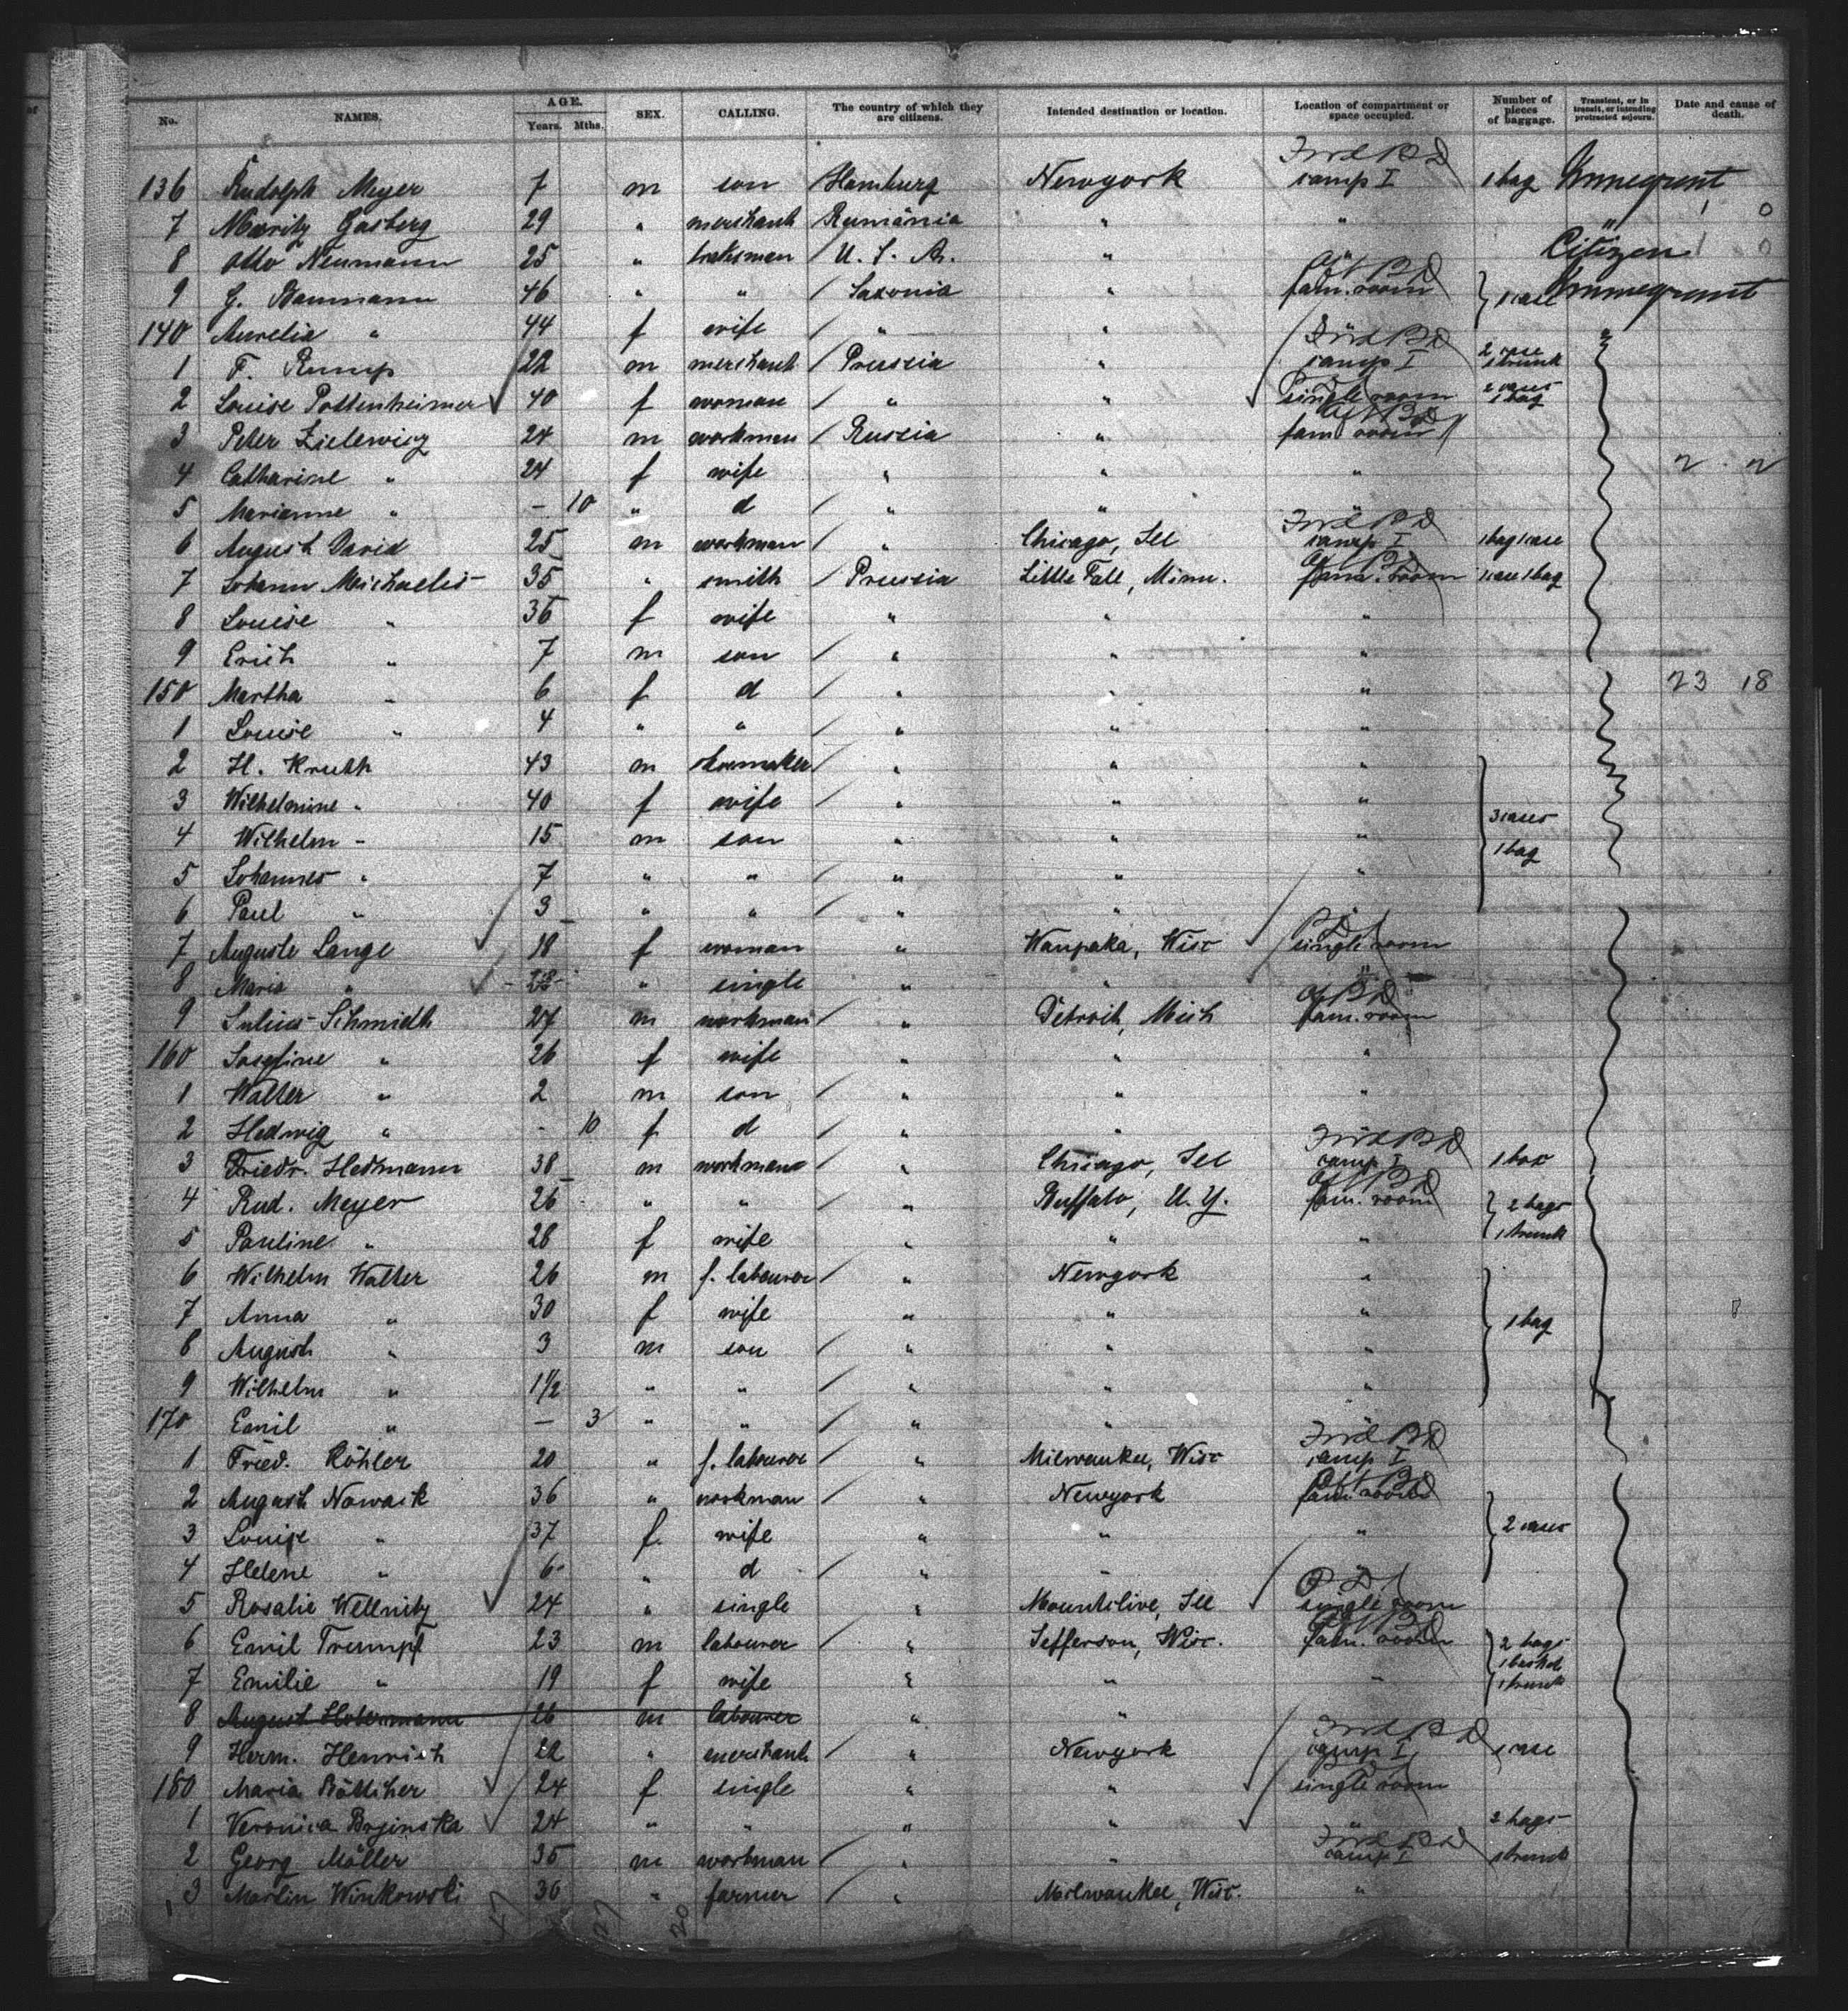 No. NAMES. AGE. Years. Mths. SEX. CALLING. The country of which they are citizens. Intended destination or location. Location of compartment or space occupied. Number of pieces of baggage. Transient, or in transit, or intending protracted sojourn. Date and cause of death.
136 Rudolph Meyer 7 m son Hamburg Newyork camp I 1 bag Immegrant
7 Moritz Gasberg 29 " merchant Rumänia " " "
8 Otto Neumann 25 " U. S. A. " " Citizen
9 G. Naumann 46 " " Saxonia " fam. room 1 case Immegrant
140 Aurelia " 44 f wife " "
1 F. Rump 22 m merchant Prussia " camp I 2 case 1 trunk
2 Louise Pottenheimer 40 f woman " " single room 1 bag
3 Peter Zielewicz 24 m workman Russia " fam room
4 Catharine " 24 f wife " " "
5 Marianne " - 10 " d " "
6 August David 25 m workman " Chicago, Ill camp I 1 bag 1 case
7 Johann Meichaelis 35 " smith Prussia Little Fall, Minn. fam. room 1 case 1 bag
8 Louise " 36 f wife " " "
9 Erich " 7 m son " " "
150 Martha " 6 f d " " " 23 18
1 Louise " 4 " " " " "
2 H. Kruth 43 m shoemaker " " "
3 Wilhelmine " 40 f wife " " " 3 cases
4 Wilhelm " 15 m son " " " 1 bag
5 Johannes " 7 " " " " "
6 Paul " 3 " " " "
7 Auguste Lange 18 f woman " Waupaka, Wisc single room
8 Maria " 28 " single " " "
9 Julius Schmidt 27 m workman " Detroit, Mich fam. room
160 Josefine " 26 f wife " " "
1 Walter " 2 m son " " "
2 Hedwig " - 10 f d " "
3 Friedr. Hedmann 38 m workman " Chicago, Ill camp I 1 box
4 Rud. Meyer 26 " " " Buffalo, N. Y. fam. room 2 bags
5 Pauline " 28 f wife " " " 1 trunk
6 Wilhelm Walter 26 m f. labourer " Newyork "
7 Anna " 30 f wife " " " 1 bag
8 August " 3 m son " " "
9 Wilhelm " 1 1/2 " " " " "
170 Emil " - 3 " " " "
1 Fried. Köhler 20 " f. labourer " Milwaukee, Wisc camp I
2 August Nowack 36 " workman " Newyork fam. room
3 Louise " 37 f. wife " " " 2 cases
4 Helene " 6 " d " "
5 Rosalie Wellnitz 24 " single " Mountolive, Ill single room
6 Emil Trumpf 23 m labourer " Jefferson, Wisc. fam. room 2 bags 1 basket
7 Emilie " 19 f wife " " " 1 trunk
8 August Habermann 26 m labourer " "
9 Herm. Henrich 22 " merchant " Newyork camp I 1 case
180 Maria Bötticher 24 f single " " single room
1 Veronica 24 " " " " " 2 bags
2 Georg Möller 35 m workman " " camp I 1 trunk
3 Martin Winkowski 36 " farmer " Milwaukee, Wisc. "
47 27 20